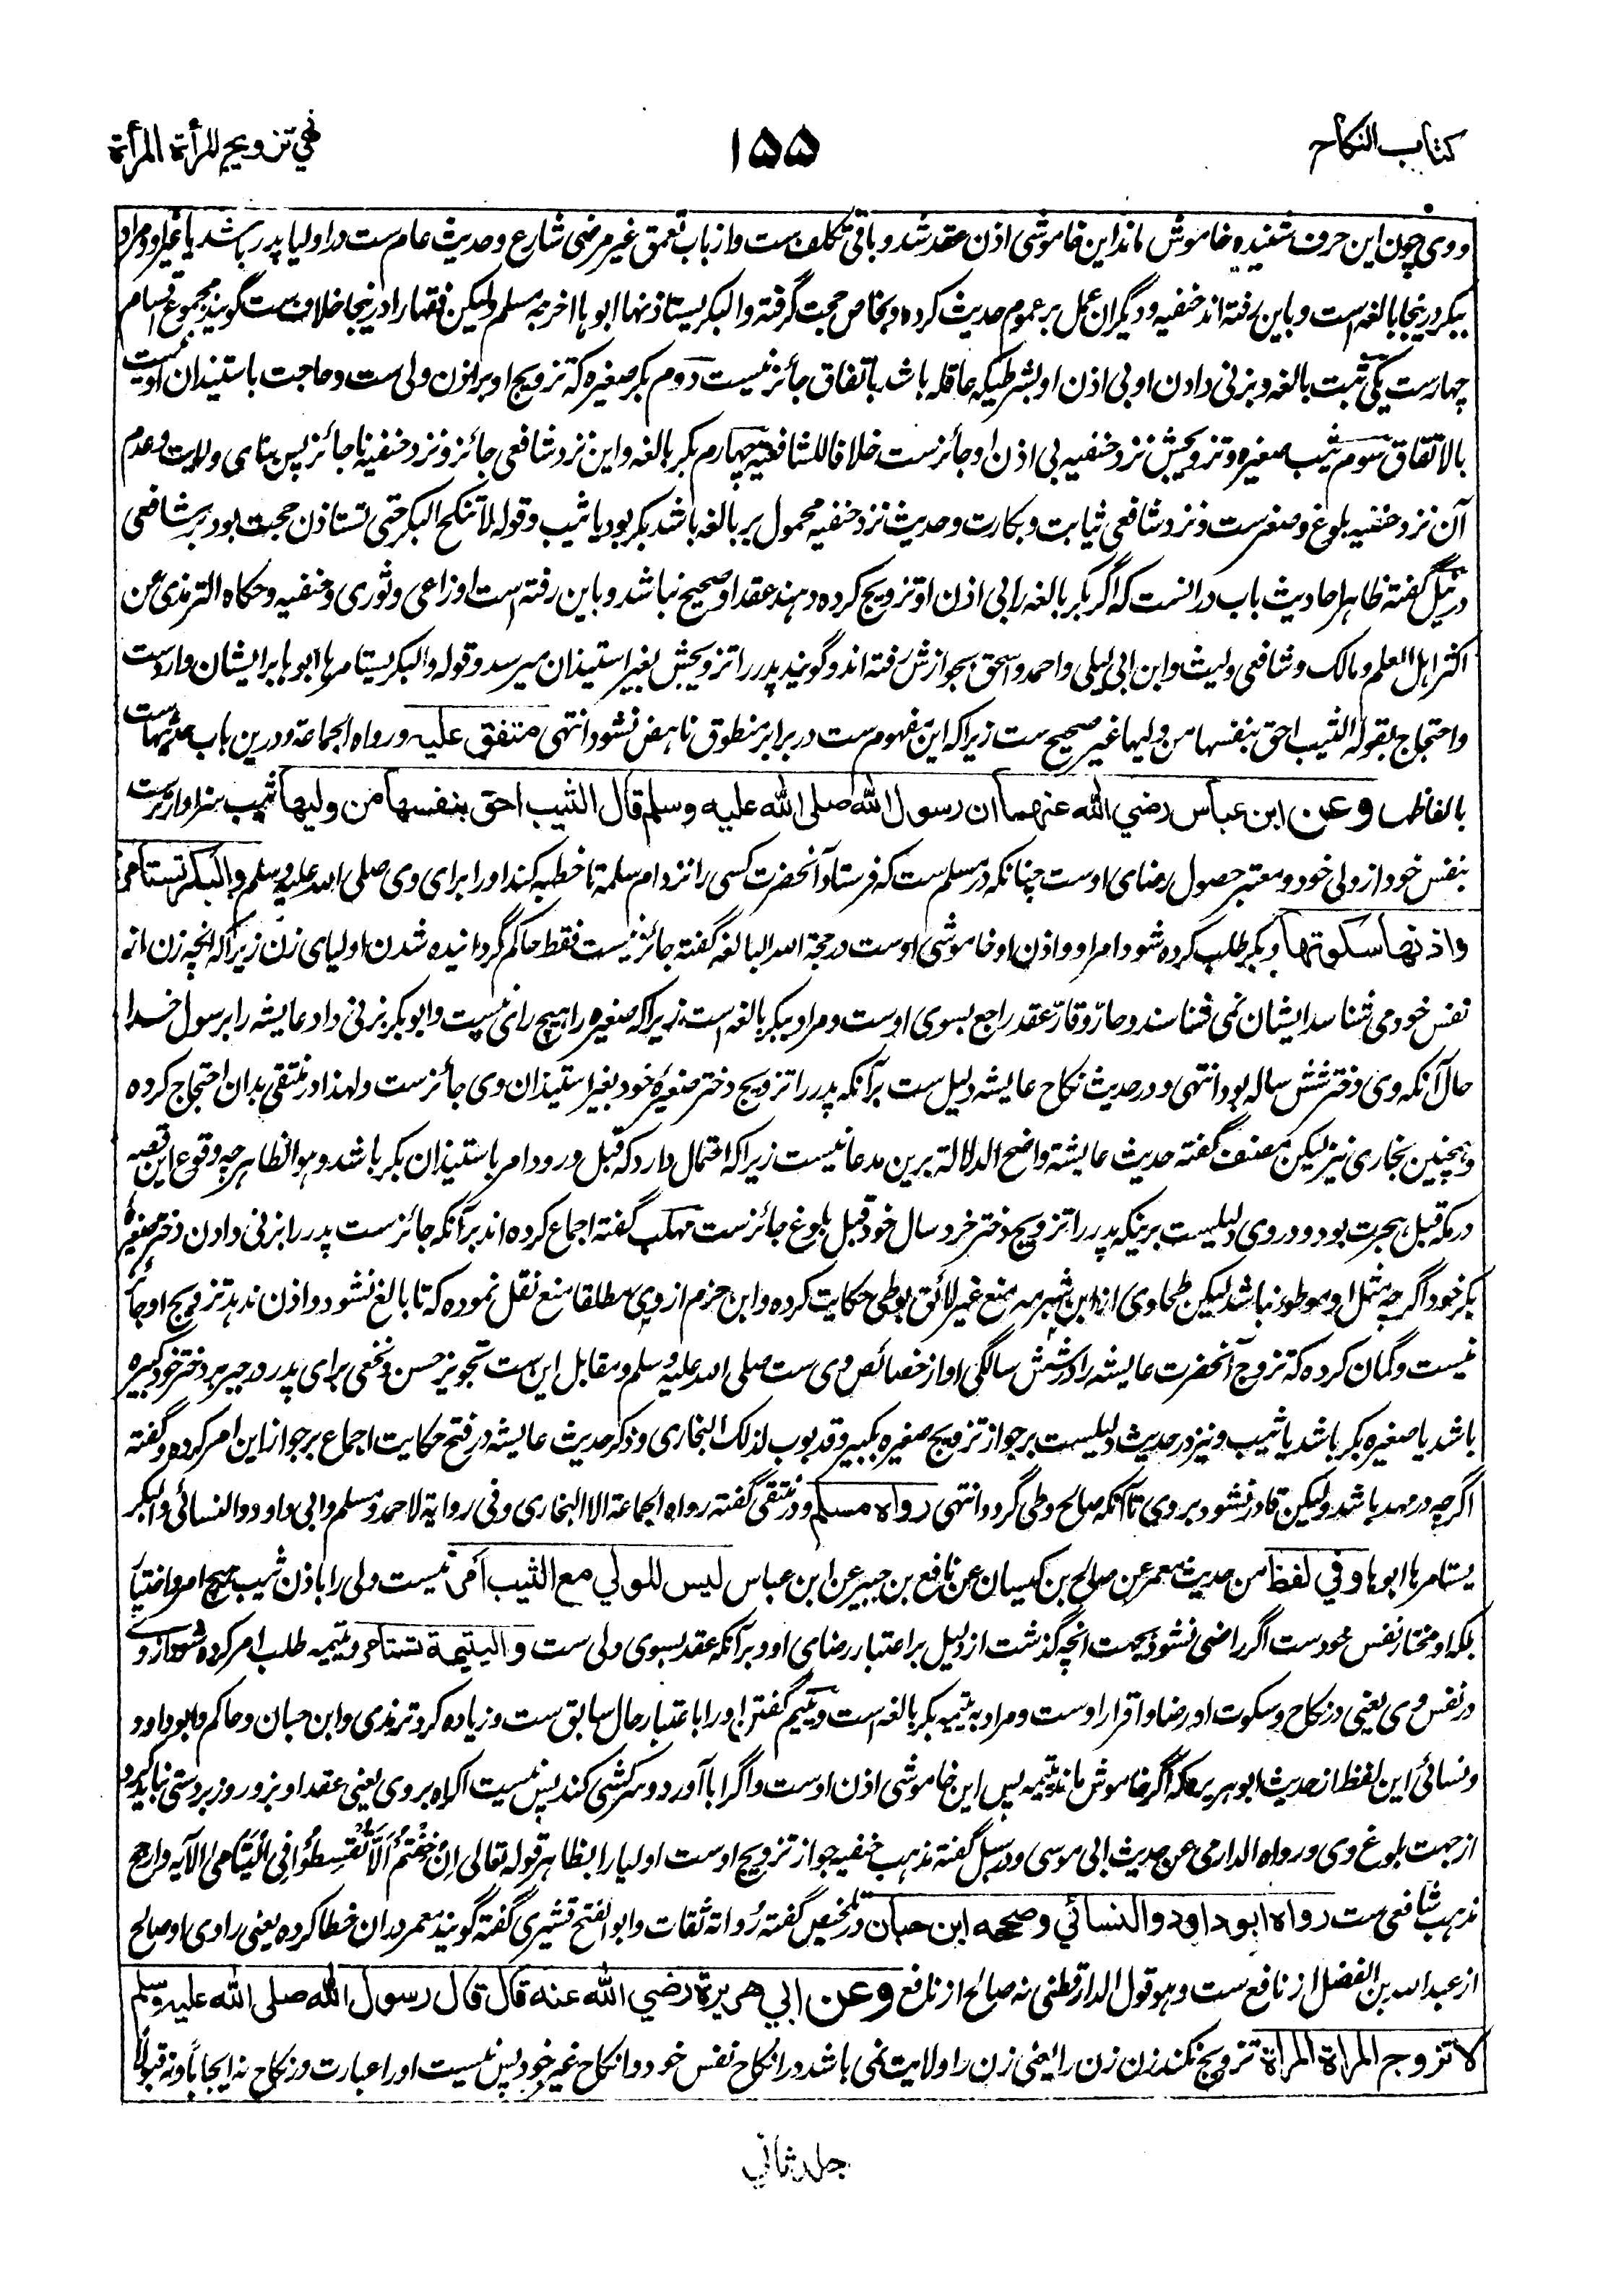 كتاب النكاح
١٥٥
نهي تزويج المرأة المرأة
و وی چون این حرف شنیده خاموش ماند این خاموشی اذن عقد شد و باقی تکلف ست و از باب تعمق غیر مرضی شارع و حدیث عام ست در اولیا پدر باشد یا غیر او و مراد
ببکر درینجا بالغه است و باین رفته اند حنفیه و دیگران عمل بر عموم حدیث کرده و بخاص حجت گرفته و البکر یستاذنها ابوها اخرجه مسلم ولیکن فقها را درینجا خلاف ست گویند مجموع اقسام
چهارست یکی ثیبت بالغه و بزنی دادن او بی اذن او بشرطیکه عاقله باشد باتفاق جائز نیست دوم بکر صغیره که تزویج او بر اذن ولی ست و حاجت باستیذان او نیست
بالاتفاق سوم ثیب صغیره و تزویجش نزد حنفیه بی اذن او جائزست خلافا للشافعیه چهارم بکر بالغه و این نزد شافعی جائز و نزد حنفیه ناجائز پس بنای ولایت و عدم
آن نزد حنفیه بلوغ و صغرست و نزد شافعی ثیابت و بکارت و حدیث نزد حنفیه محمول بر بالغه باشد بکر بود یا ثیب و قوله لا تنکح البکر حتی تستاذن حجت بود بر شافعی
در نیل گفته ظاهر احادیث باب در آنست که اگر بکر بالغه را بی اذن او تزویج کرده دهند عقد او صحیح نباشد و باین رفته است اوزاعی و ثوری و حنفیه و حکاه الترمذی عن
اکثر اهل العلم و مالک و شافعی و لیث و ابن ابی لیلی و احمد و اسحق بجوازش رفته اند و گویند پدر را تزویجش بغیر استیذان میرسد و قوله و البکر یستامرها ابوها بر ایشان واردست
و احتجاج بقوله الثیب احق بنفسها من ولیها غیر صحیح ست زیرا که این مفهوم ست در برابر منطوق ناهض نشود انتهی متفق علیه و رواه الجماعة و درین باب حدیثهاست
بالفاظ وعن ابن عباس رضي الله عنهما ان رسول الله صلى الله عليه وسلم قال الثيب احق بنفسها من وليها ثیب سزاوارترست
بنفس خود از ولی خود و معتبر حصول رضای اوست چنانکه در مسلم ست که فرستاد آنحضرت کسی را نزد ام سلمة تا خطبه کند او را برای وی صلی الله علیه وسلم والبكر تستأمر
واذنها سكوتها و بکر طلب کرده شود امر او و اذن او خاموشی اوست در حجة الله البالغه گفته جائز نیست فقط حاکم گردانیده شدن اولیای زن زیرا که آنچه زن از
نفس خود می شناسد ایشان نمی شناسند و حارّ و قارّ عقد راجع بسوی اوست و مراد ببکر بالغه است زیرا که صغیره را هیچ رای نیست و ابوبکر بزنی داد عایشه را برسول خدا
حال آنکه وی دختر شش ساله بود انتهی و در حدیث نکاح عایشه دلیل ست بر آنکه پدر را تزویج دختر صغیرۀ خود بغیر استیذان وی جائزست و لهذا در منتقی بدان احتجاج کرده
و همچنین بخاری نیز لیکن مصنف گفته حدیث عایشه واضح الدلالة برین مدعا نیست زیرا که احتمال دارد که قبل ورود امر باستیذان بکر باشد و هو الظاهر چه وقوع این قصه
در مکه قبل هجرت بود و در وی دلیلیست برینکه پدر را تزویج دختر خرد سال خود قبل بلوغ جائزست مهلب گفته اجماع کرده اند بر آنکه جائزست پدر را بزنی دادن دختر صغیرۀ
بکر خود اگرچه مثل او موطوء نباشد لیکن طحاوی از ابن شبرمه منع غیر لائق بوطی حکایت کرده و ابن حزم از وی مطلقا منع نقل نموده که تا بالغ نشود و اذن ندهد تزویج او جائز
نیست و گمان کرده که تزوج آنحضرت عایشه را در شش سالگی او از خصائص وی ست صلی الله علیه وسلم و مقابل این ست تجویز حسن و نخعی برای پدر و جبر بر دختر خود کبیره
باشد یا صغیره بکر باشد یا ثیب و نیز در حدیث دلیلیست بر جواز تزویج صغیره بکبیر و قد بوب لذلک البخاری و ذکر حدیث عایشه در فتح حکایت اجماع بر جواز این امر کرده و گفته
اگرچه در مهد باشد ولیکن قادر نشود بر وی تا آنکه صالح وطی گردد انتهی رواه مسلم و در منتقی گفته رواه الجماعة الا البخاری و فی روایة لاحمد و مسلم و ابی داود و النسائی و البکر
یستامرها ابوها وفي لفظ من حدیث معمر عن صالح بن کیسان عن نافع بن جبیر عن ابن عباس ليس للولي مع الثيب أمر نیست ولی را با ذن ثیب هیچ امر و اختیار
بلکه او مختار نفس خودست اگر راضی نشود بجهت آنچه گذشت از دلیل بر اعتبار رضای او و بر آنکه عقد بسوی ولی ست واليتيمة تستأمر و یتیمه طلب امر کرده شود از وی
در نفس وی یعنی در نکاح و سکوت او رضا و اقرار اوست و مراد به یتیمه بکر بالغه است و یتیم گفتن او را باعتبار حال سابق ست و زیاده کرد ترمذی و ابن حبان و حاکم و ابوداود
و نسائی این لفظ از حدیث ابوهریره که اگر خاموش ماند یتیمه پس این خاموشی اذن اوست و اگر ابا آورد و سرکشی کند پس نیست اکراه بر وی یعنی عقد او بزور و زبردستی نباید کرد
از جهت بلوغ وی و رواه الدارمی عن حدیث ابی موسی و در سبل گفته مذهب حنفیه جواز تزویج اوست اولیا را بظاهر قوله تعالی اِنْ خِفْتُمْ اَلَّا تُقْسِطُوْا فِی الْیَتَامٰی الآیه و ارجح
مذهب شافعی ست رواه ابوداود والنسائي وصححه ابن حبان در تلخیص گفته رُواته ثقات و ابو الفتح قشیری گفته گویند معمر دران خطا کرده یعنی راوی او صالح
از عبدالله بن الفضل از نافع ست و هو قول الدارقطنی نه صالح از نافع وعن ابي هريرة رضي الله عنه قال قال رسول الله صلى الله عليه وسلم
لا تزوج المرأة المرأة تزویج نکند زن زن را یعنی زن را ولایت نمی باشد در انکاح نفس خود و انکاح غیر خود پس نیست او را عبارت در نکاح نه ایجاباً و نه قبولاً
جلد ثاني